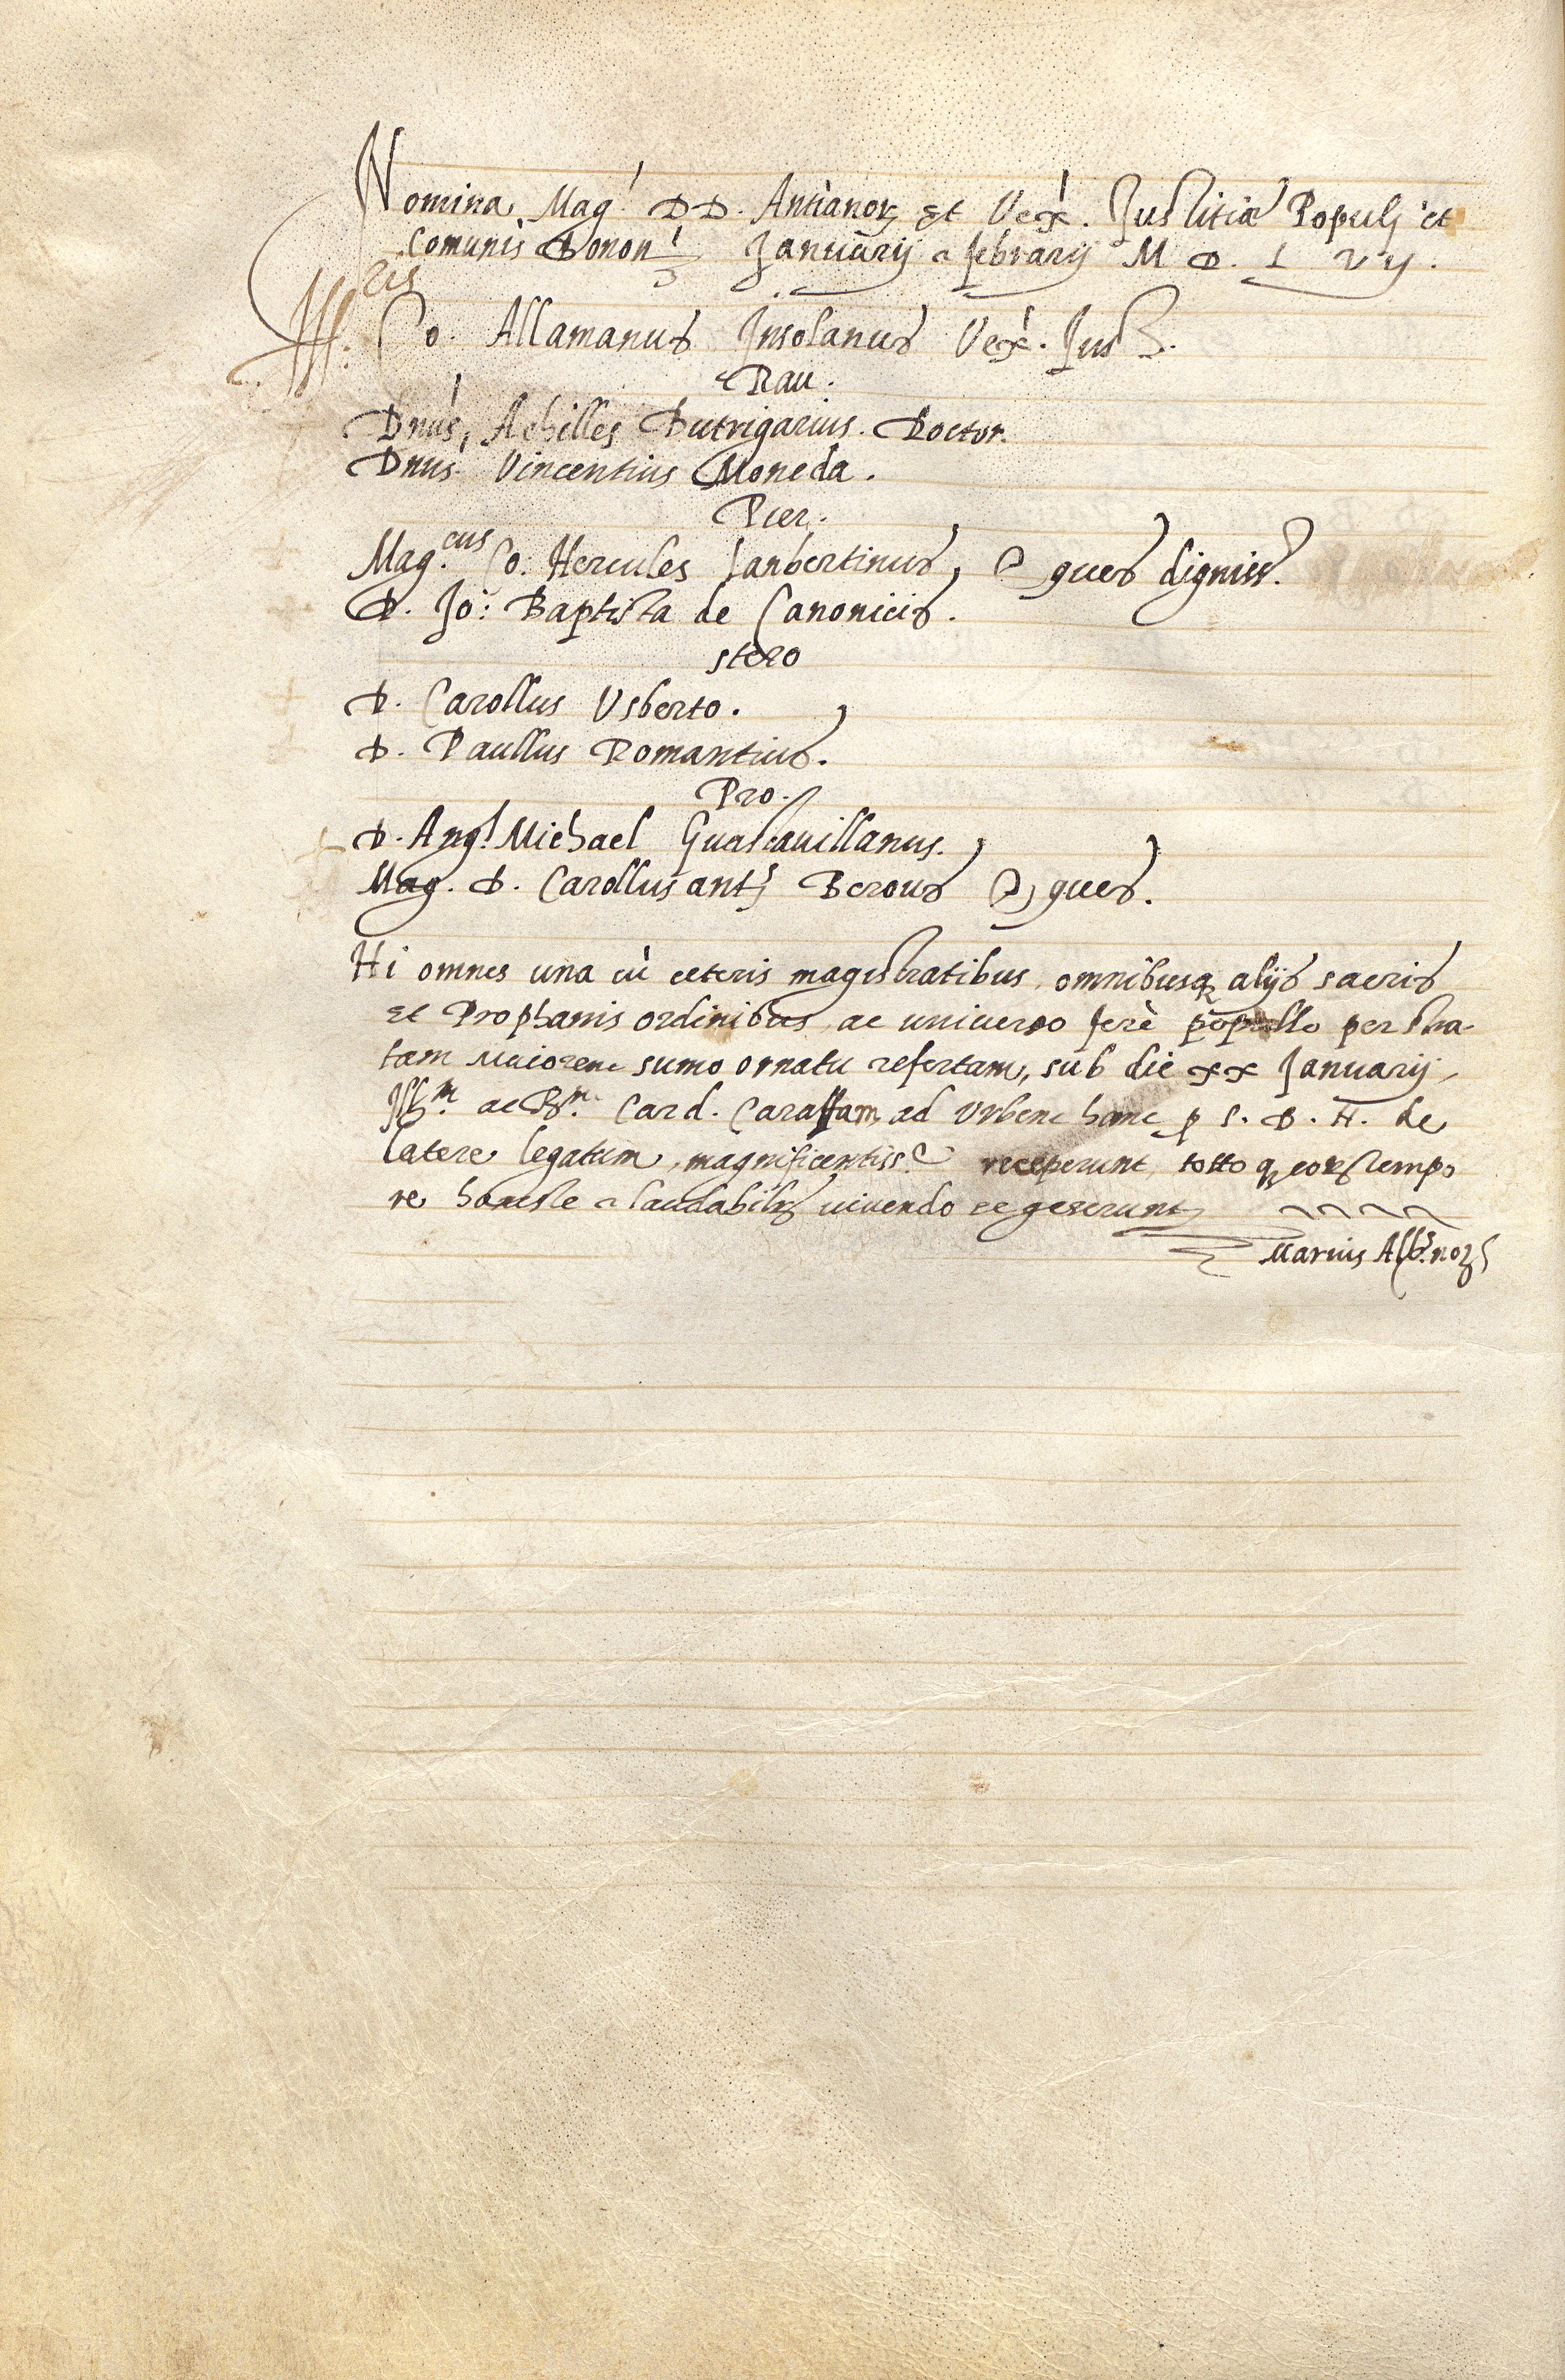 Nomina Mag.ᶦ DD. Antianoꝝ Et Vexᶦ. Justitiæ Populj et
Comunis Bonon. Januarij a febrarij M D. L vij.
Ill. Co. Allamanus Insolanus Vexᶦ. Just.
Rau.
Dnus, Achilles Butrigarius. Doctor.
Dnus Vincentius Moneda.
Pier.
Mag.cus Co. Hercules Lanbertinus, & ques digniss.
D. Jo: Baptista de Canonicis.
stero
D. Carollus Usberto.
D. Paullus Romantius.
Pro.
D. Angl Michael Guastauillanus.
Mag. D. Carollus ants Berous & ques.
Hi omnes una cù ceteris magistratibus, omnibusq alijs sacris
et Prophanis ordinibus, ac uniuerso ferè popullo per stra-
tam Maiorem sumo ornatu refertam, sub die xx Januarij
Ill.m ac R.m Card. Caraffam ad Urbem hanc p S. D. N. de
latere legatum, magnificentiss.e receperunt totto q eoꝝ tempo
re honeste a laudabilr uiuendo se gesserunt
Marius Alb. no